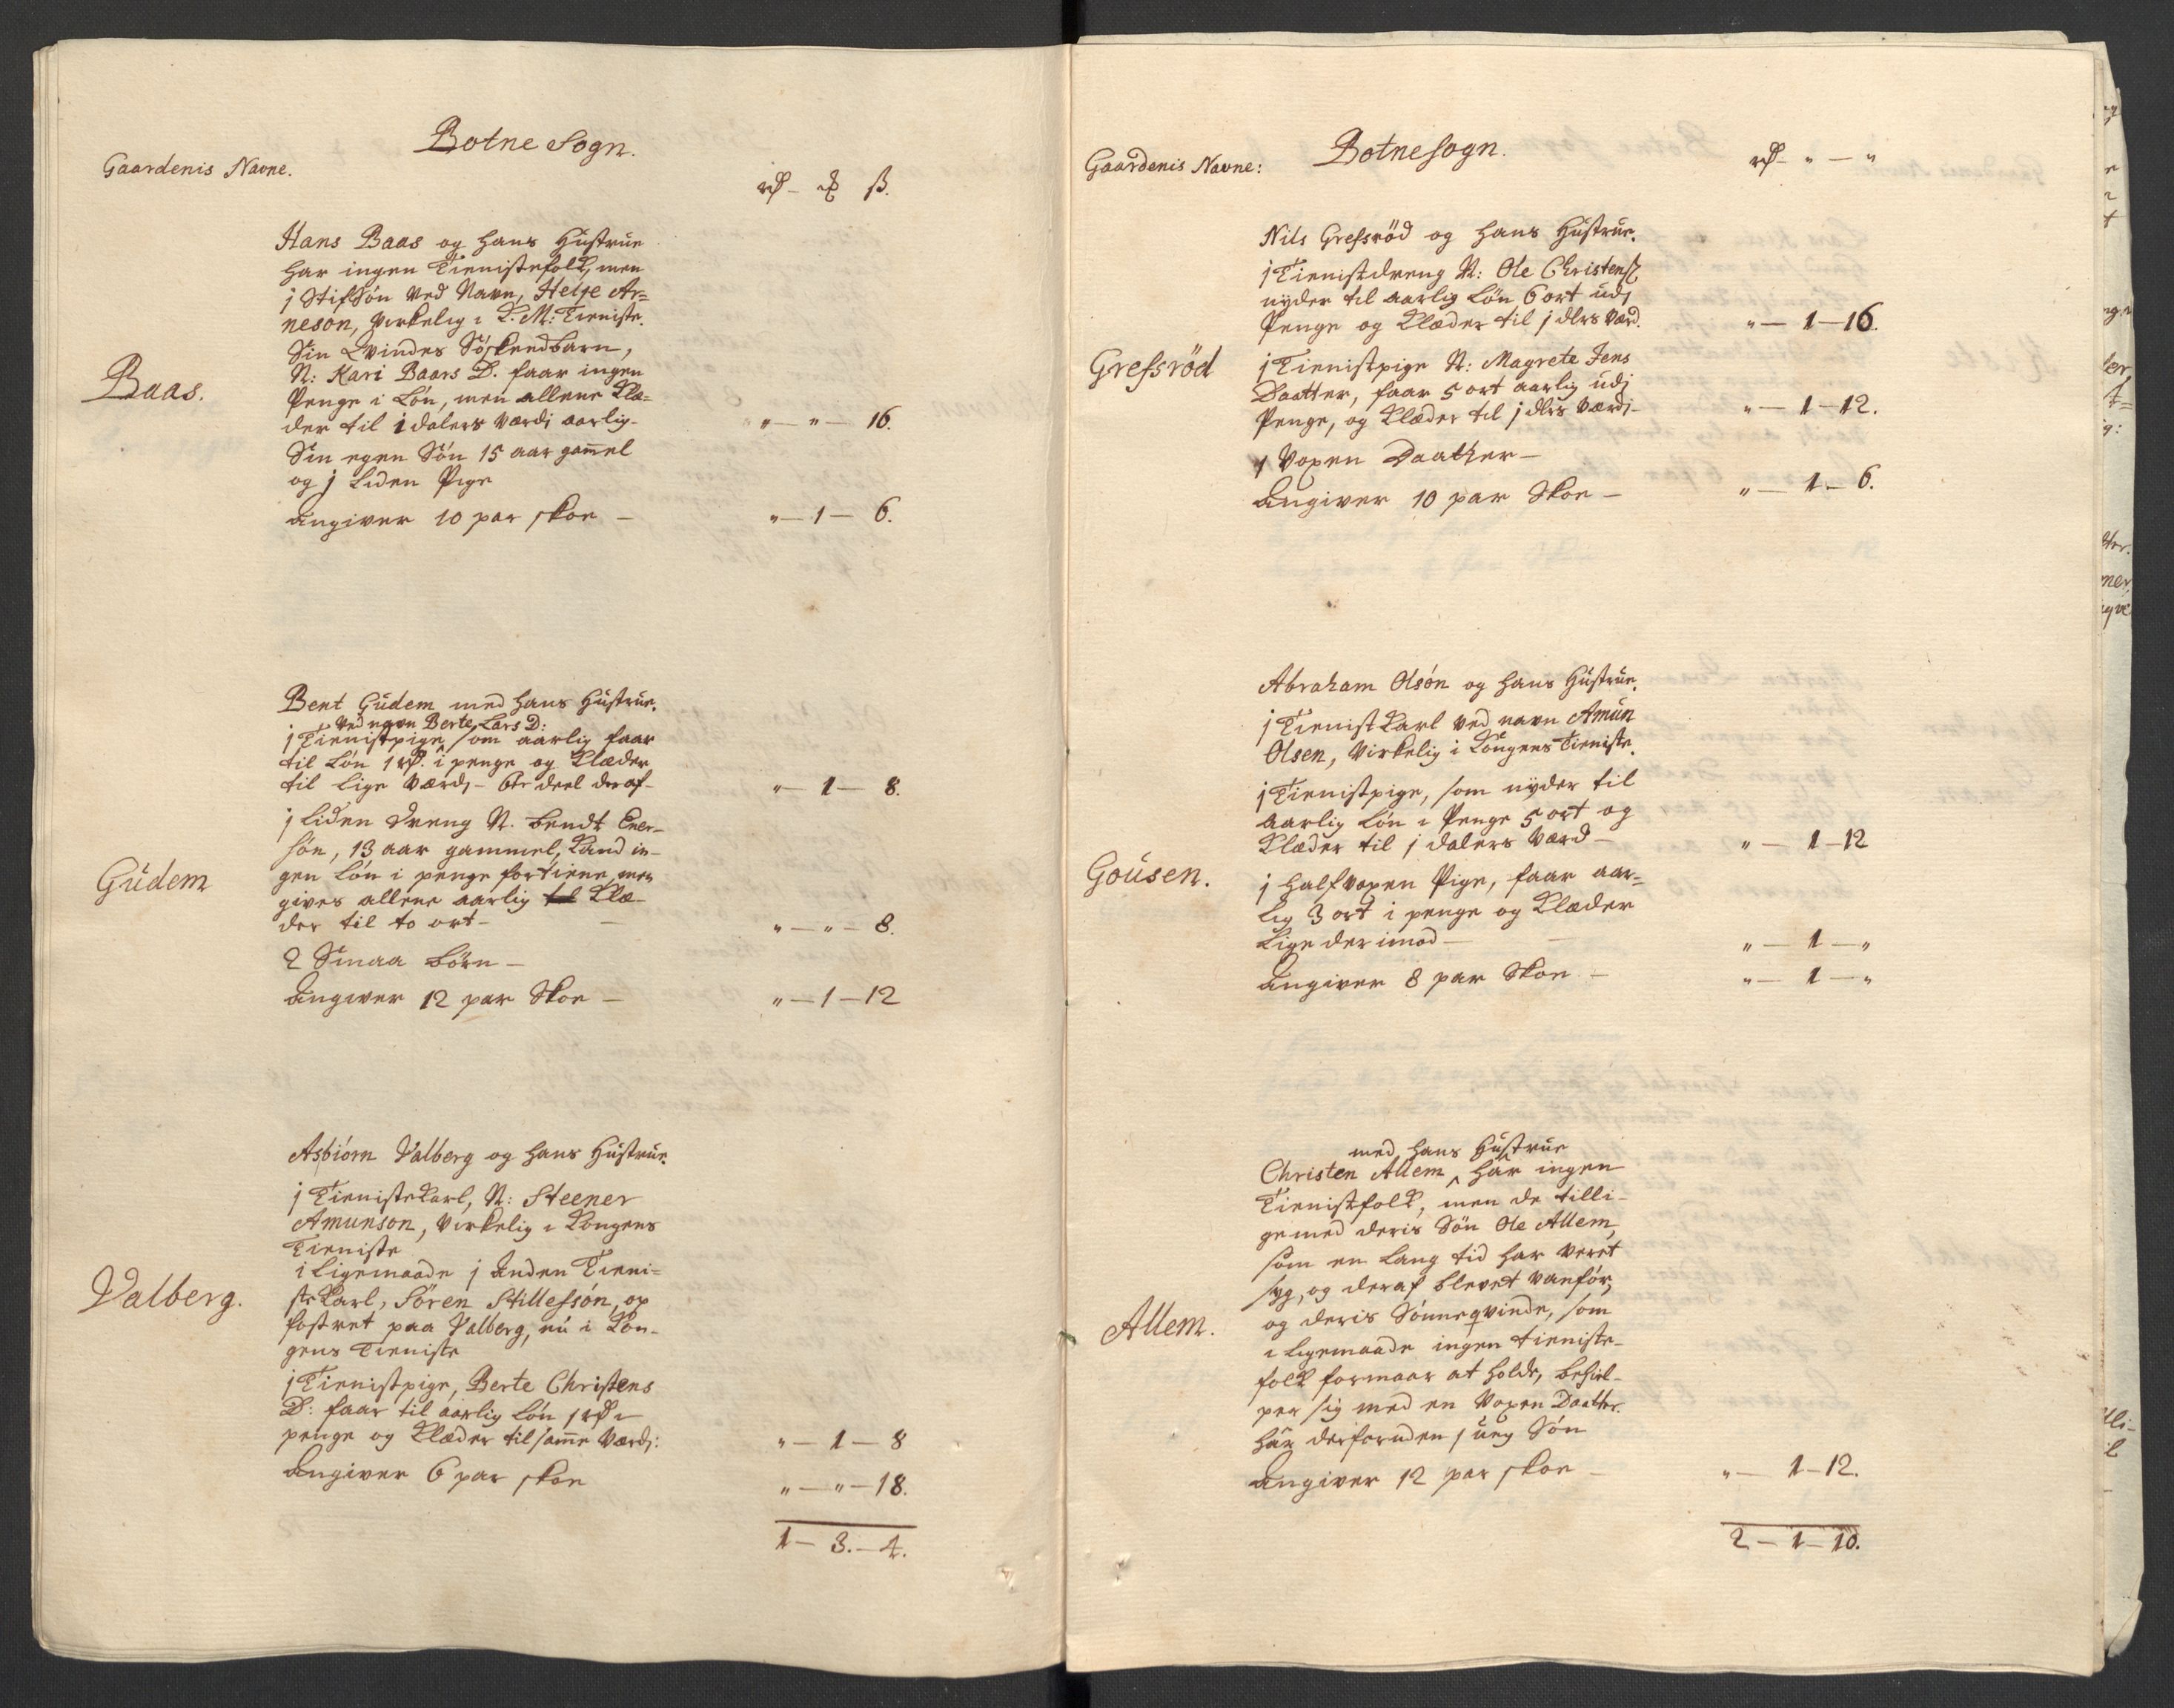 Botne Sogn.
Gaardenis Navne.
rd – ß.
Hans Baas og hans Hustrue
har ingen Tienistefolk, men
j StifSøn ved Navn, Helje Ar=
neson, virkelig i K. M: Tieniste.
Sin Qvindes Søskendbarn,
N: Kari Baars D. faar ingen
Penge i Løn, men allene Klæ=
der til i dalers værdj aarlig – " – " – 16.
Baas.
Sin egen Søn 15 aar gam̄el
og j Liden Pige
Angiver 10 par skoe – " – 1 – 6.
Bent Gudem med hans Hustrue.
ved navn Berte Lars D:
j Tienistpige, som aarlig faar
til Løn 1 rd. i penge og Klæder
til lige Værdj – 6te deel deraf – " – 1 – 8.
j Liden Dreng N. Bendt Ener=
søn, 13 aar gammel, Kand in=
gen Løn i penge fortiene, men
Gudem
gives allene aarlig til Klæ=
der til to ort – " – " – 8.
2 Smaa Børn –
Angiver 12 par Skoe – " – 1 – 12
Asbiørn Valberg og hans Hustrue.
j TienisteKarl, N: Steener
Amunson, virkelig i Kongens
Tieniste
i Ligemaade j Anden Tieni=
ste Karl, Søren Stillessøn, op
Valberg.
fostret paa Valberg, nu i Kon=
gens Tieniste
j Tienistpige, Berte Christens
D: faar til aarlig Løn 1 rd i
penge og Klæder til sam̄e Værdj: " – 1 – 8
Angiver 6 par skoe " – " – 18.
1 – 3. – 4.
Botne Sogn.
Gaardenis Navne:
rd – " – "
Nils Grefsrød og hans Hustrue.
j Tienistdreng N: Ole Christens.
nyder til aarlig Løn 6 ort udj
Penge og Klæder til j dlrs Værd. " – 1 – 16.
Grefsrød
j Tienistpige N: Magrete Jens
Daatter, faar 5 ort aarlig udj
Penge, og Klæder til j dlrs Værdj – " – 1 – 12.
1 Voxen Daatter –
Angiver 10 par Skoe – " – 1 – 6.
Abraham Olsøn og hans Hustrue.
j TienistKarl ved navn Amun
Olsen, Virkelig i Kongens Tieniste.
j Tienistpige, som nyder til
aarlig Løn i Penge 5 ort og
Klæder til j dalers Værd – " – 1 – 12
Gousen.
j halfvoxen Pige, faar aar=
lig 3 ort i penge og Klæder
Lige derimod – " – 1 – "
Angiver 8 par Skoe – " – 1 – "
med hans Hustrue
Christen Allem, har ingen
Tienistfolk, men de tilli=
gemed deris Søn Ole Allem,
som en Lang tid har veret
syg, og deraf blevet vanfør,
og deris Sønneqvinde, som
Allem.
i ligemaade ingen tieniste=
folk formaar at holde, behiel=
per sig med en Voxen Daatter.
har desforuden j ung Søn
Angiver 12 par skoe – " – 1 – 12.
2 – 1 – 10.